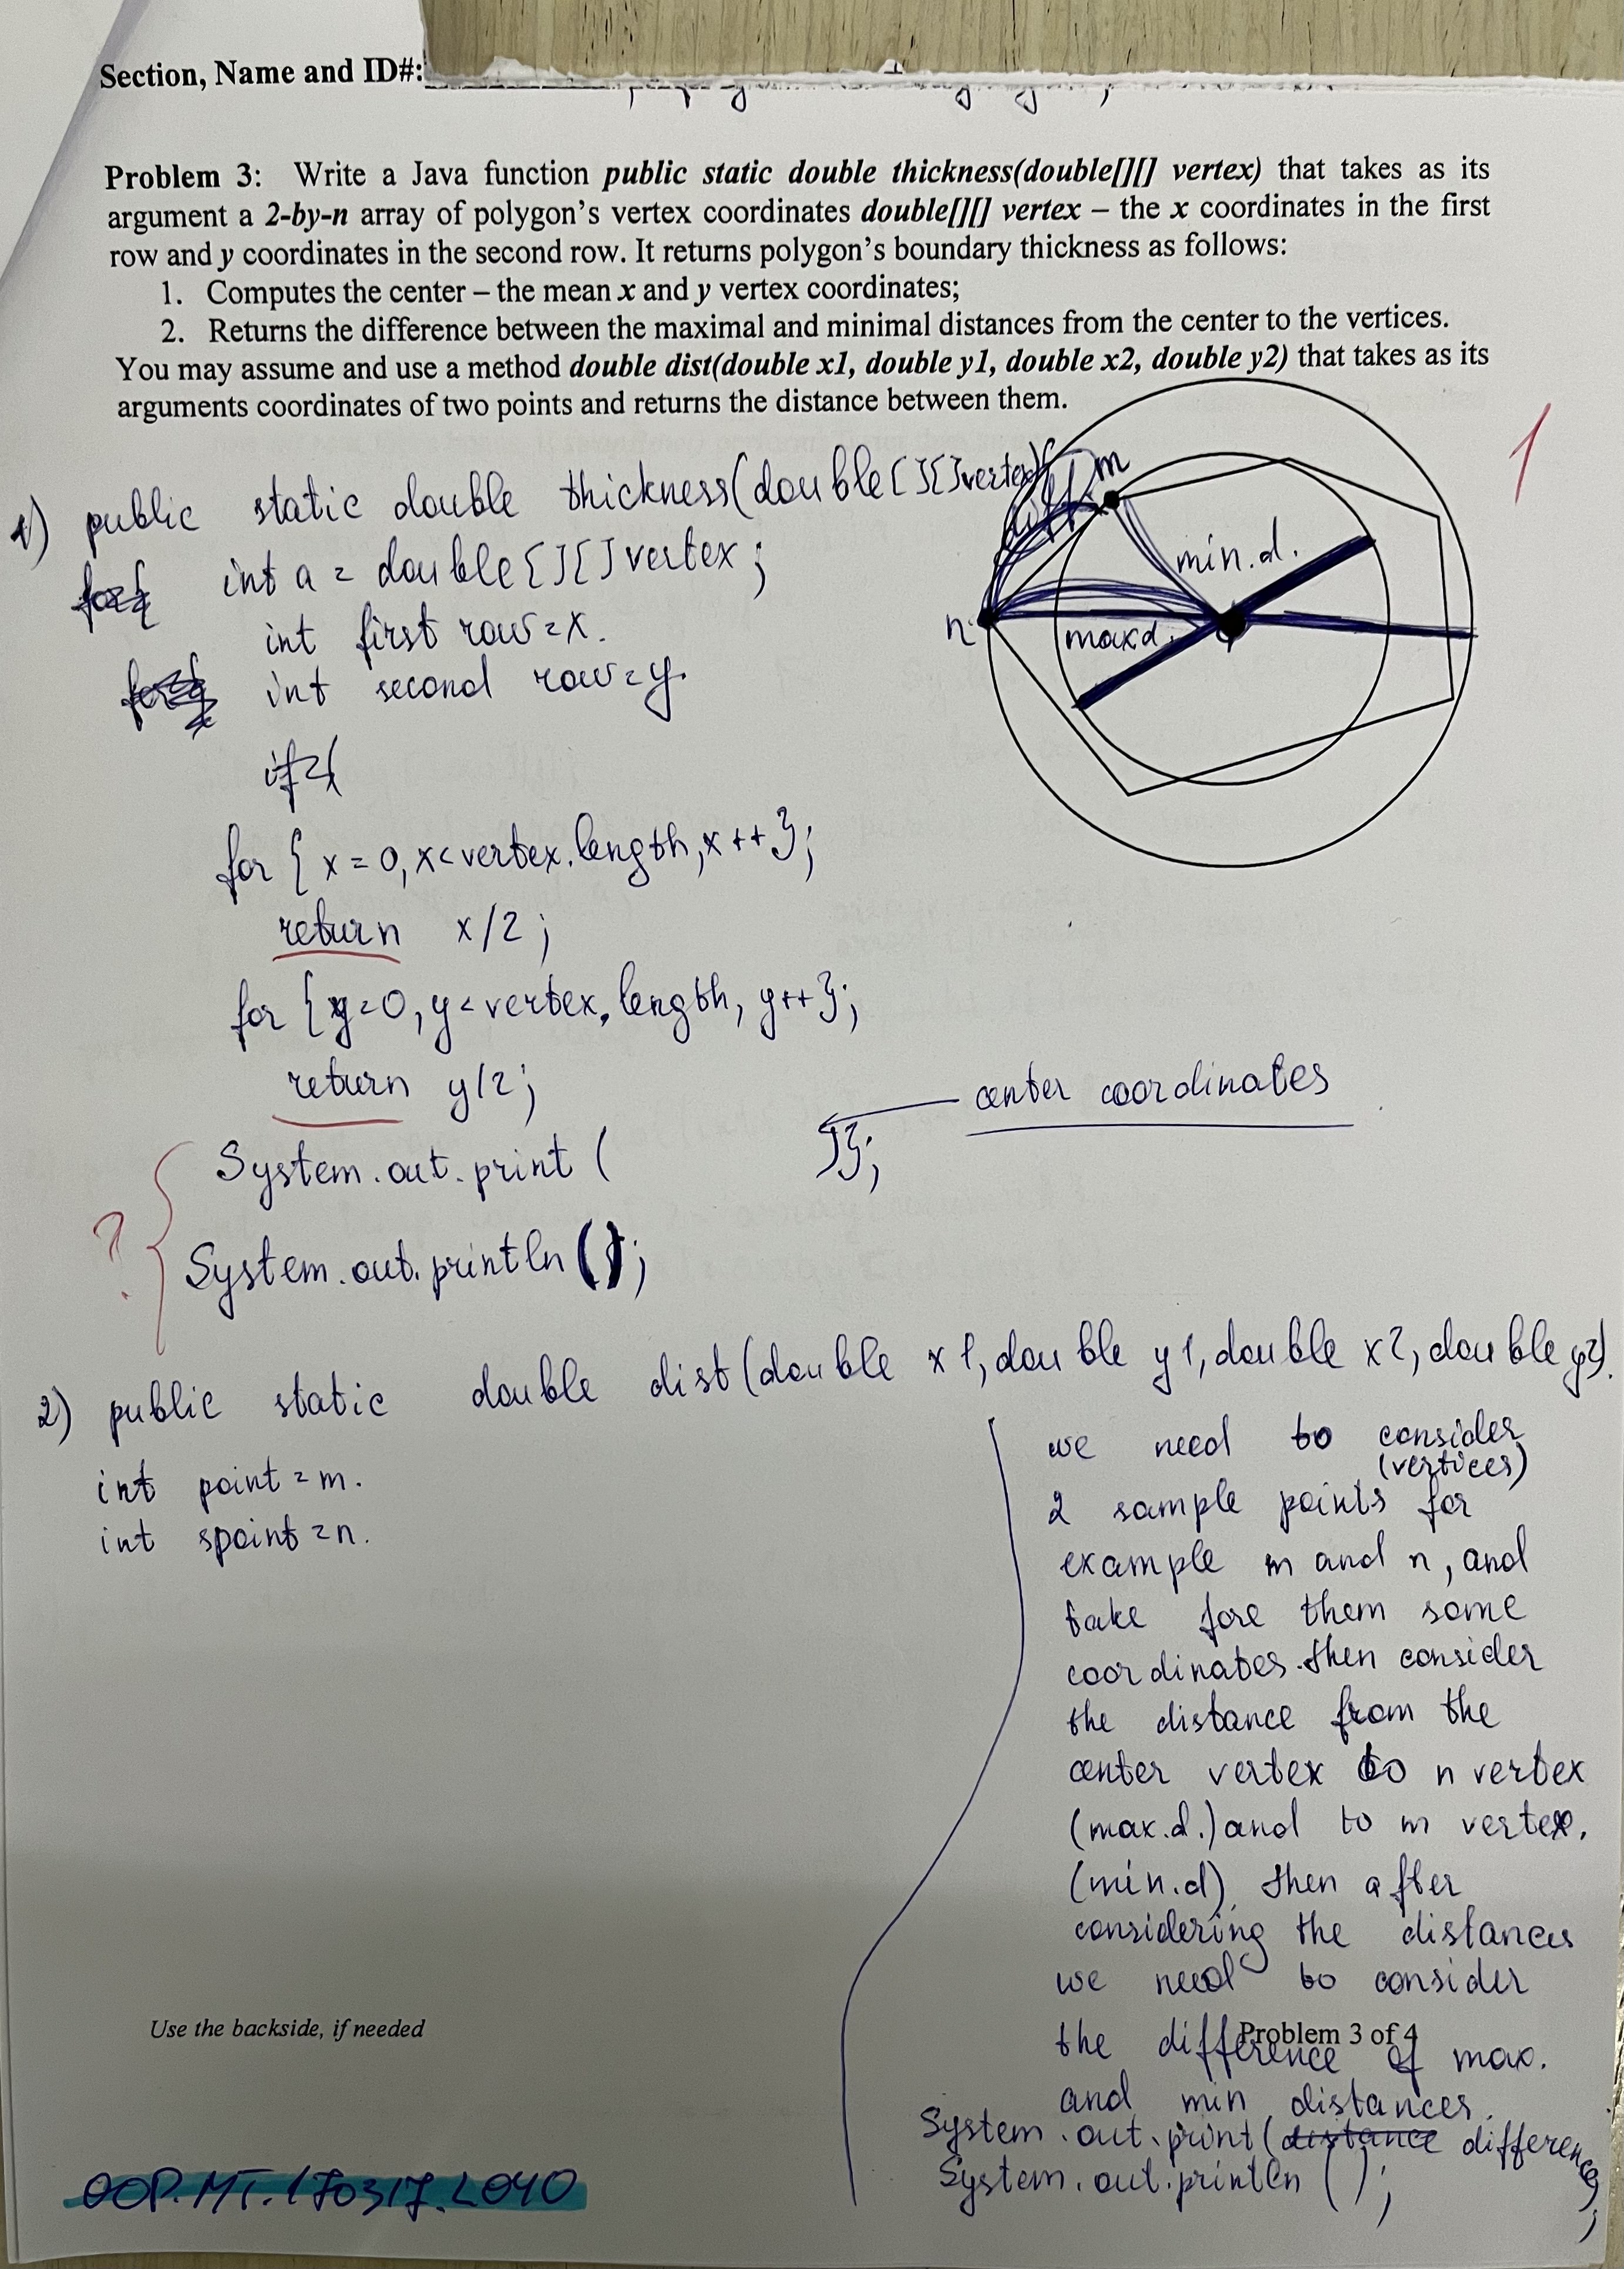 Section, Name and ID#:
Problem 3: Write a Java function public static double thickness(double[][] vertex) that takes as its
argument a 2-by-n array of polygon's vertex coordinates double[][] vertex – the x coordinates in the first
row and y coordinates in the second row. It returns polygon's boundary thickness as follows:
1. Computes the center – the mean x and y vertex coordinates;
2. Returns the difference between the maximal and minimal distances from the center to the vertices.
You may assume and use a method double dist(double x1, double y1, double x2, double y2) that takes as its
arguments coordinates of two points and returns the distance between them.
1
1) public static double thickness(double[][]vertex){
int a = double[][]vertex;
int first row=x.
int second row=y.
if{
for { x = 0, x<vertex.length, x++};
return x/2;
for {y=0, y<vertex.length, y++};
return y/2;
center coordinates
System.out.print( )};
?
System.out.println();
diff
m
min.d.
n.
max d.
2) public static double dist(double x1, double y1, double x2, double y2).
int point = m.
int spoint = n.
we need to consider
(vertices)
2 sample points for
example m and n, and
take fore them some
coordinates. then consider
the distance from the
center vertex to n vertex
(max.d.) and to m vertex.
(min.d) then after
considering the distances
we need to consider
the difference of max.
and min distances.
System.out.print(distance difference);
System.out.println();
Use the backside, if needed
Problem 3 of 4
OOP.MT.170317.L040